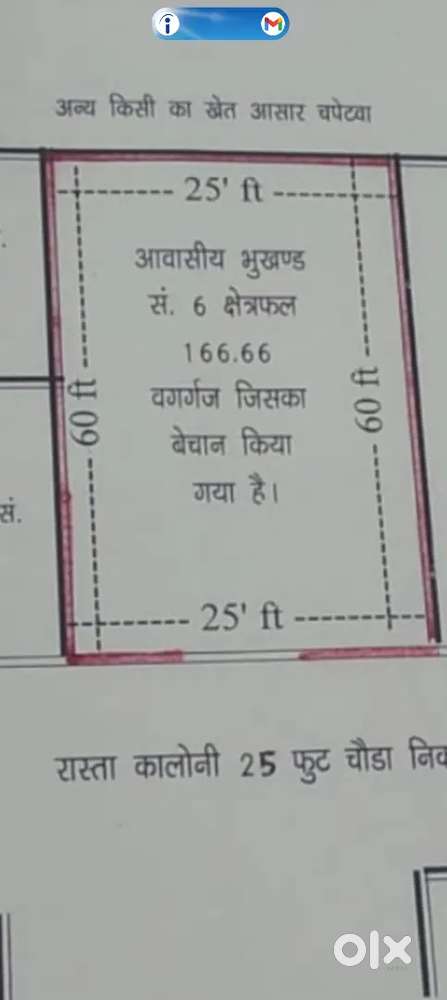 अन्य किसी का खेत आसार चपेटवा
25' ft
आवासीय भुखण्ड
सं. 6 क्षेत्रफल
166.66
वगर्गज जिसका
बेचान किया
गया है।
60 ft
60 ft
सं.
25' ft
रास्ता कालोनी 25 फुट चौडा
olx